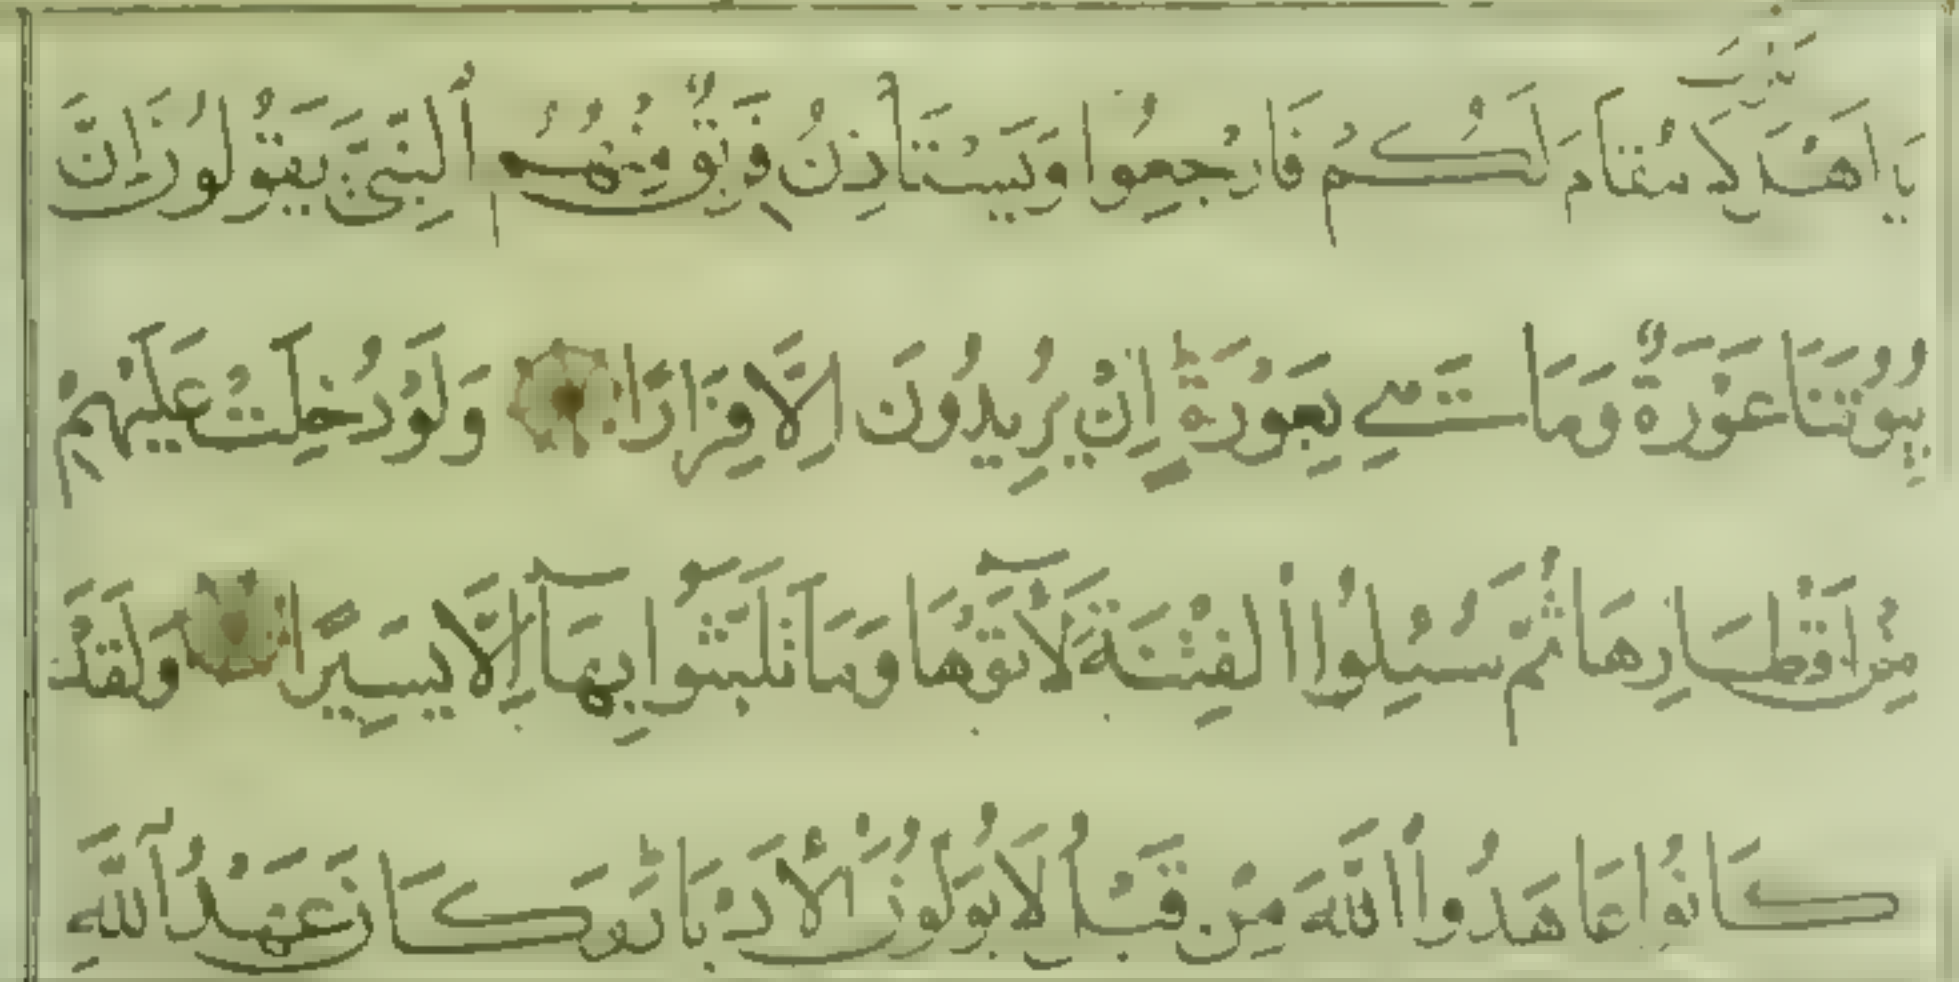 يَا اَهْلَ يَثْرِبَ لَا مُقَامَ لَكُمْ فَارْجِعُوا وَيَسْتَأْذِنُ فَرِيقٌ مِنْهُمُ ٱلنَّبِىَّ يَقُولُونَ اِنَّ
بُيُوتَنَا عَوْرَةٌ وَمَا هِيَ بِعَوْرَةٍ اِنْ يُرِيدُونَ اِلَّا فِرَارًا وَلَوْ دُخِلَتْ عَلَيْهِمْ
مِنْ اَقْطَارِهَا ثُمَّ سُئِلُوا الْفِتْنَةَ لَأٓتَوْهَا وَمَا تَلَبَّثُوا بِهَآ اِلَّا يَسِيرًا وَلَقَدْ
كَانُوا عَاهَدُوا اللَّهَ مِنْ قَبْلُ لَا يُوَلُّونَ الْأَدْبَارَ وَكَانَ عَهْدُ ٱللَّهِ